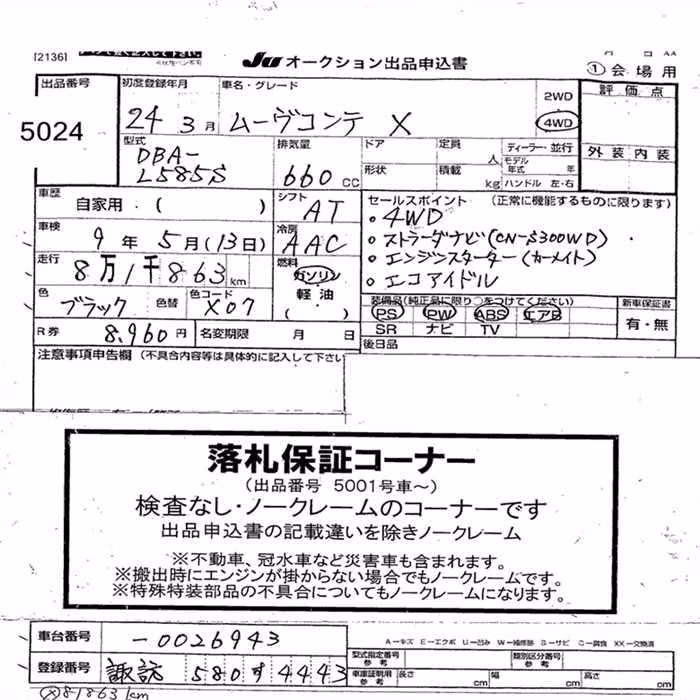 [2136]
JU オークション出品申込書
①会場用
出品番号
5024
初度登録年月
24 3月
車名・グレード
ムーヴコンテ X
2WD
4WD
評価点
外装 内装
型式
DBA-
L585S
排気量
660 CC
ドア
形状
定員
人
積載
kg
ディーラー・並行
モデル
年式 年
ハンドル 左・右
車歴
自家用・( )
シフト
AT
セールスポイント (正常に機能するものに限ります)
・4WD
・ストラーダナビ(CN-S300WD)
・エンジンスターター(カーメイト)
・エコアイドル
車検
9年5月(13日)
冷房
AAC
走行
8万1千863km
燃料
ガソリン
軽油
( )
色
ブラック
色替
色コード
X07
装備品(純正品に限り○をつけてください)
PS PW ABS エアB
SR ナビ TV
新車保証書
有・無
R券
8,960円
名変期限 月 日
後日品
注意事項申告欄 (不具合内容等は具体的に記入して下さい
落札保証コーナー
(出品番号 5001号車～)
検査なし・ノークレームのコーナーです
出品申込書の記載違いを除きノークレーム
※不動車、冠水車など災害車も含まれます。
※搬出時にエンジンが掛からない場合でもノークレームです。
※特殊特装部品の不具合についてもノークレームになります。
車台番号
-0026943
A－キズ E－エクボ U－凹み W－補修跡 S－サビ C－腐食 XX－交換済
登録番号
諏訪 580す4443
型式指定番号
参考
類別区分番号
参考
車庫証明用
参考
長さ cm
幅 cm
高さ cm
81863km